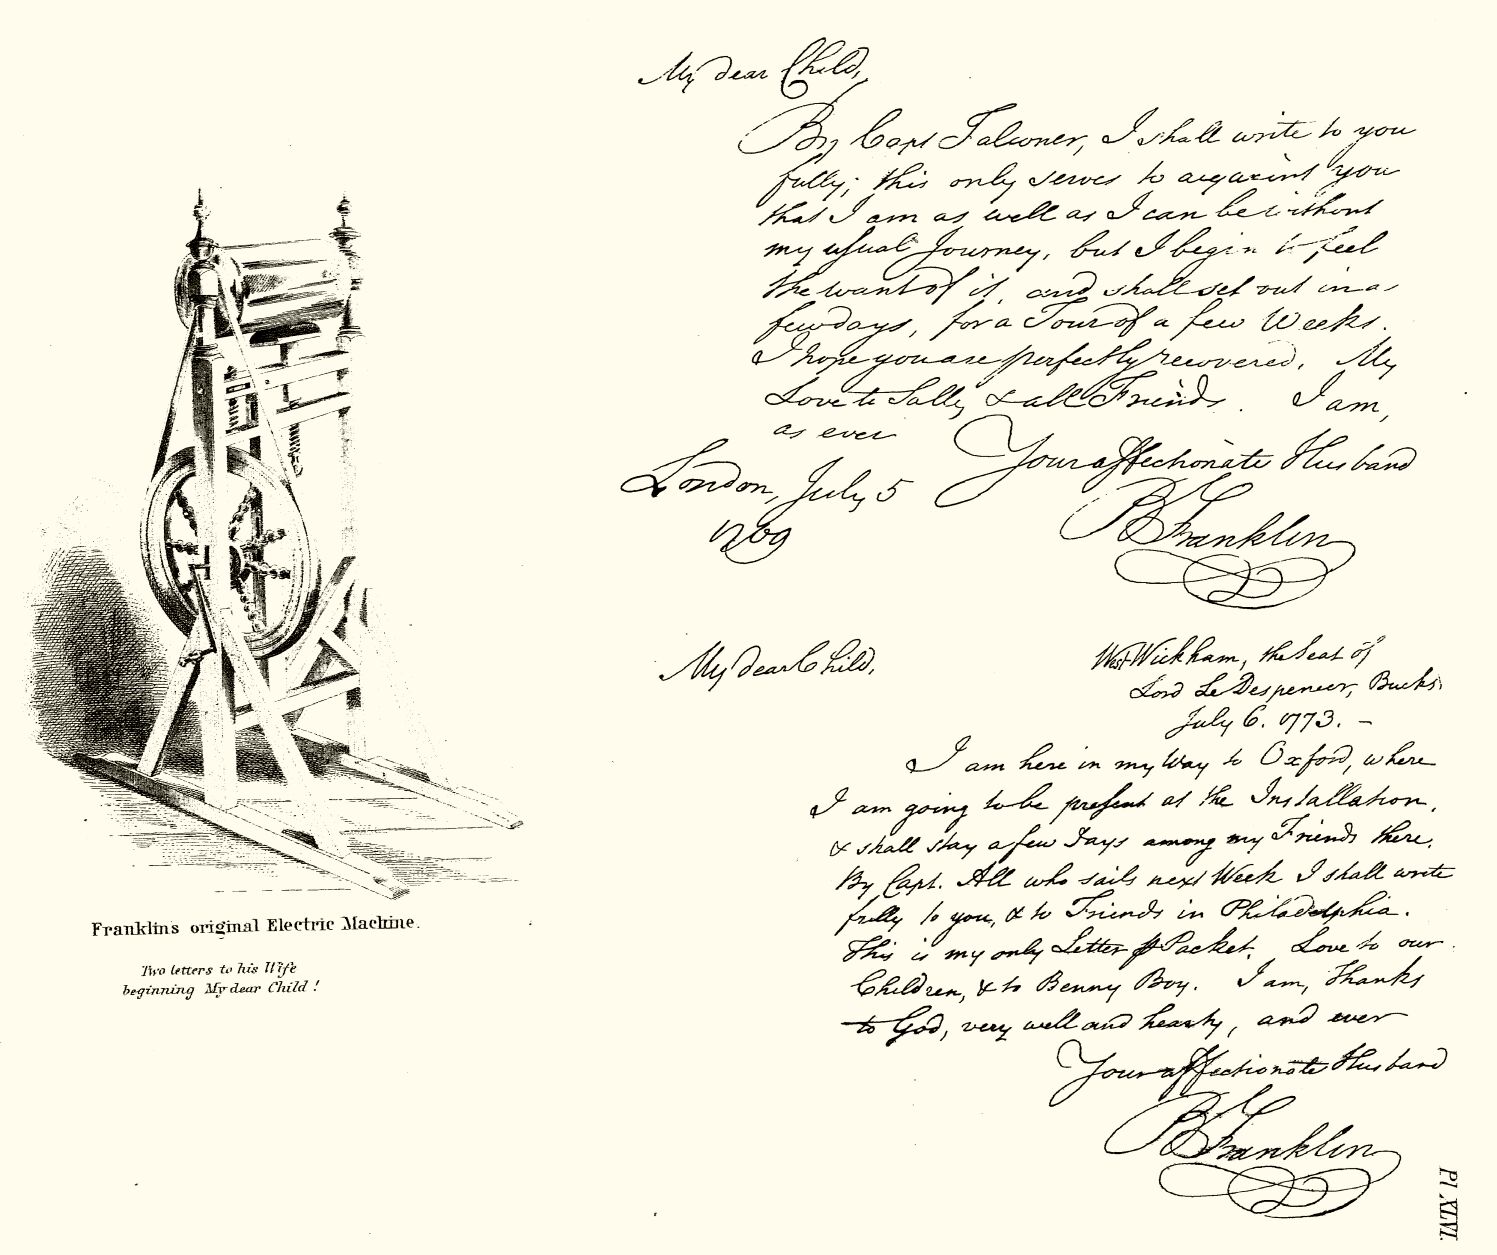 My dear Child,
By Capt Falconer, I shall write to you
fully; this only serves to acquaint you
that I am as well as I can be without
my usual Journey, but I begin to feel
the want of it, and shall set out in a
few days, for a Tour of a few Weeks.
I hope you are perfectly recovered. My
Love to Sally & all Friends. I am,
as ever
Your affectionate Husband
London, July 5
1769
B Franklin
My dear Child,
West Wickham, the Seat of
Lord Le Despencer, Bucks.
July 6. 1773. –
I am here in my Way to Oxford, where
I am going to be present at the Installation,
& shall stay a few Days among my Friends there.
By Capt. All who sails next Week I shall write
fully to you, & to Friends in Philadelphia.
This is my only Letter Packet. Love to our
Children, & to Benny Boy. I am, thanks
to God, very well and hearty, and ever
Your affectionate Husband
B Franklin
Franklins original Electric Machine.
Two letters to his Wife
beginning My dear Child !
Pl XLVI.